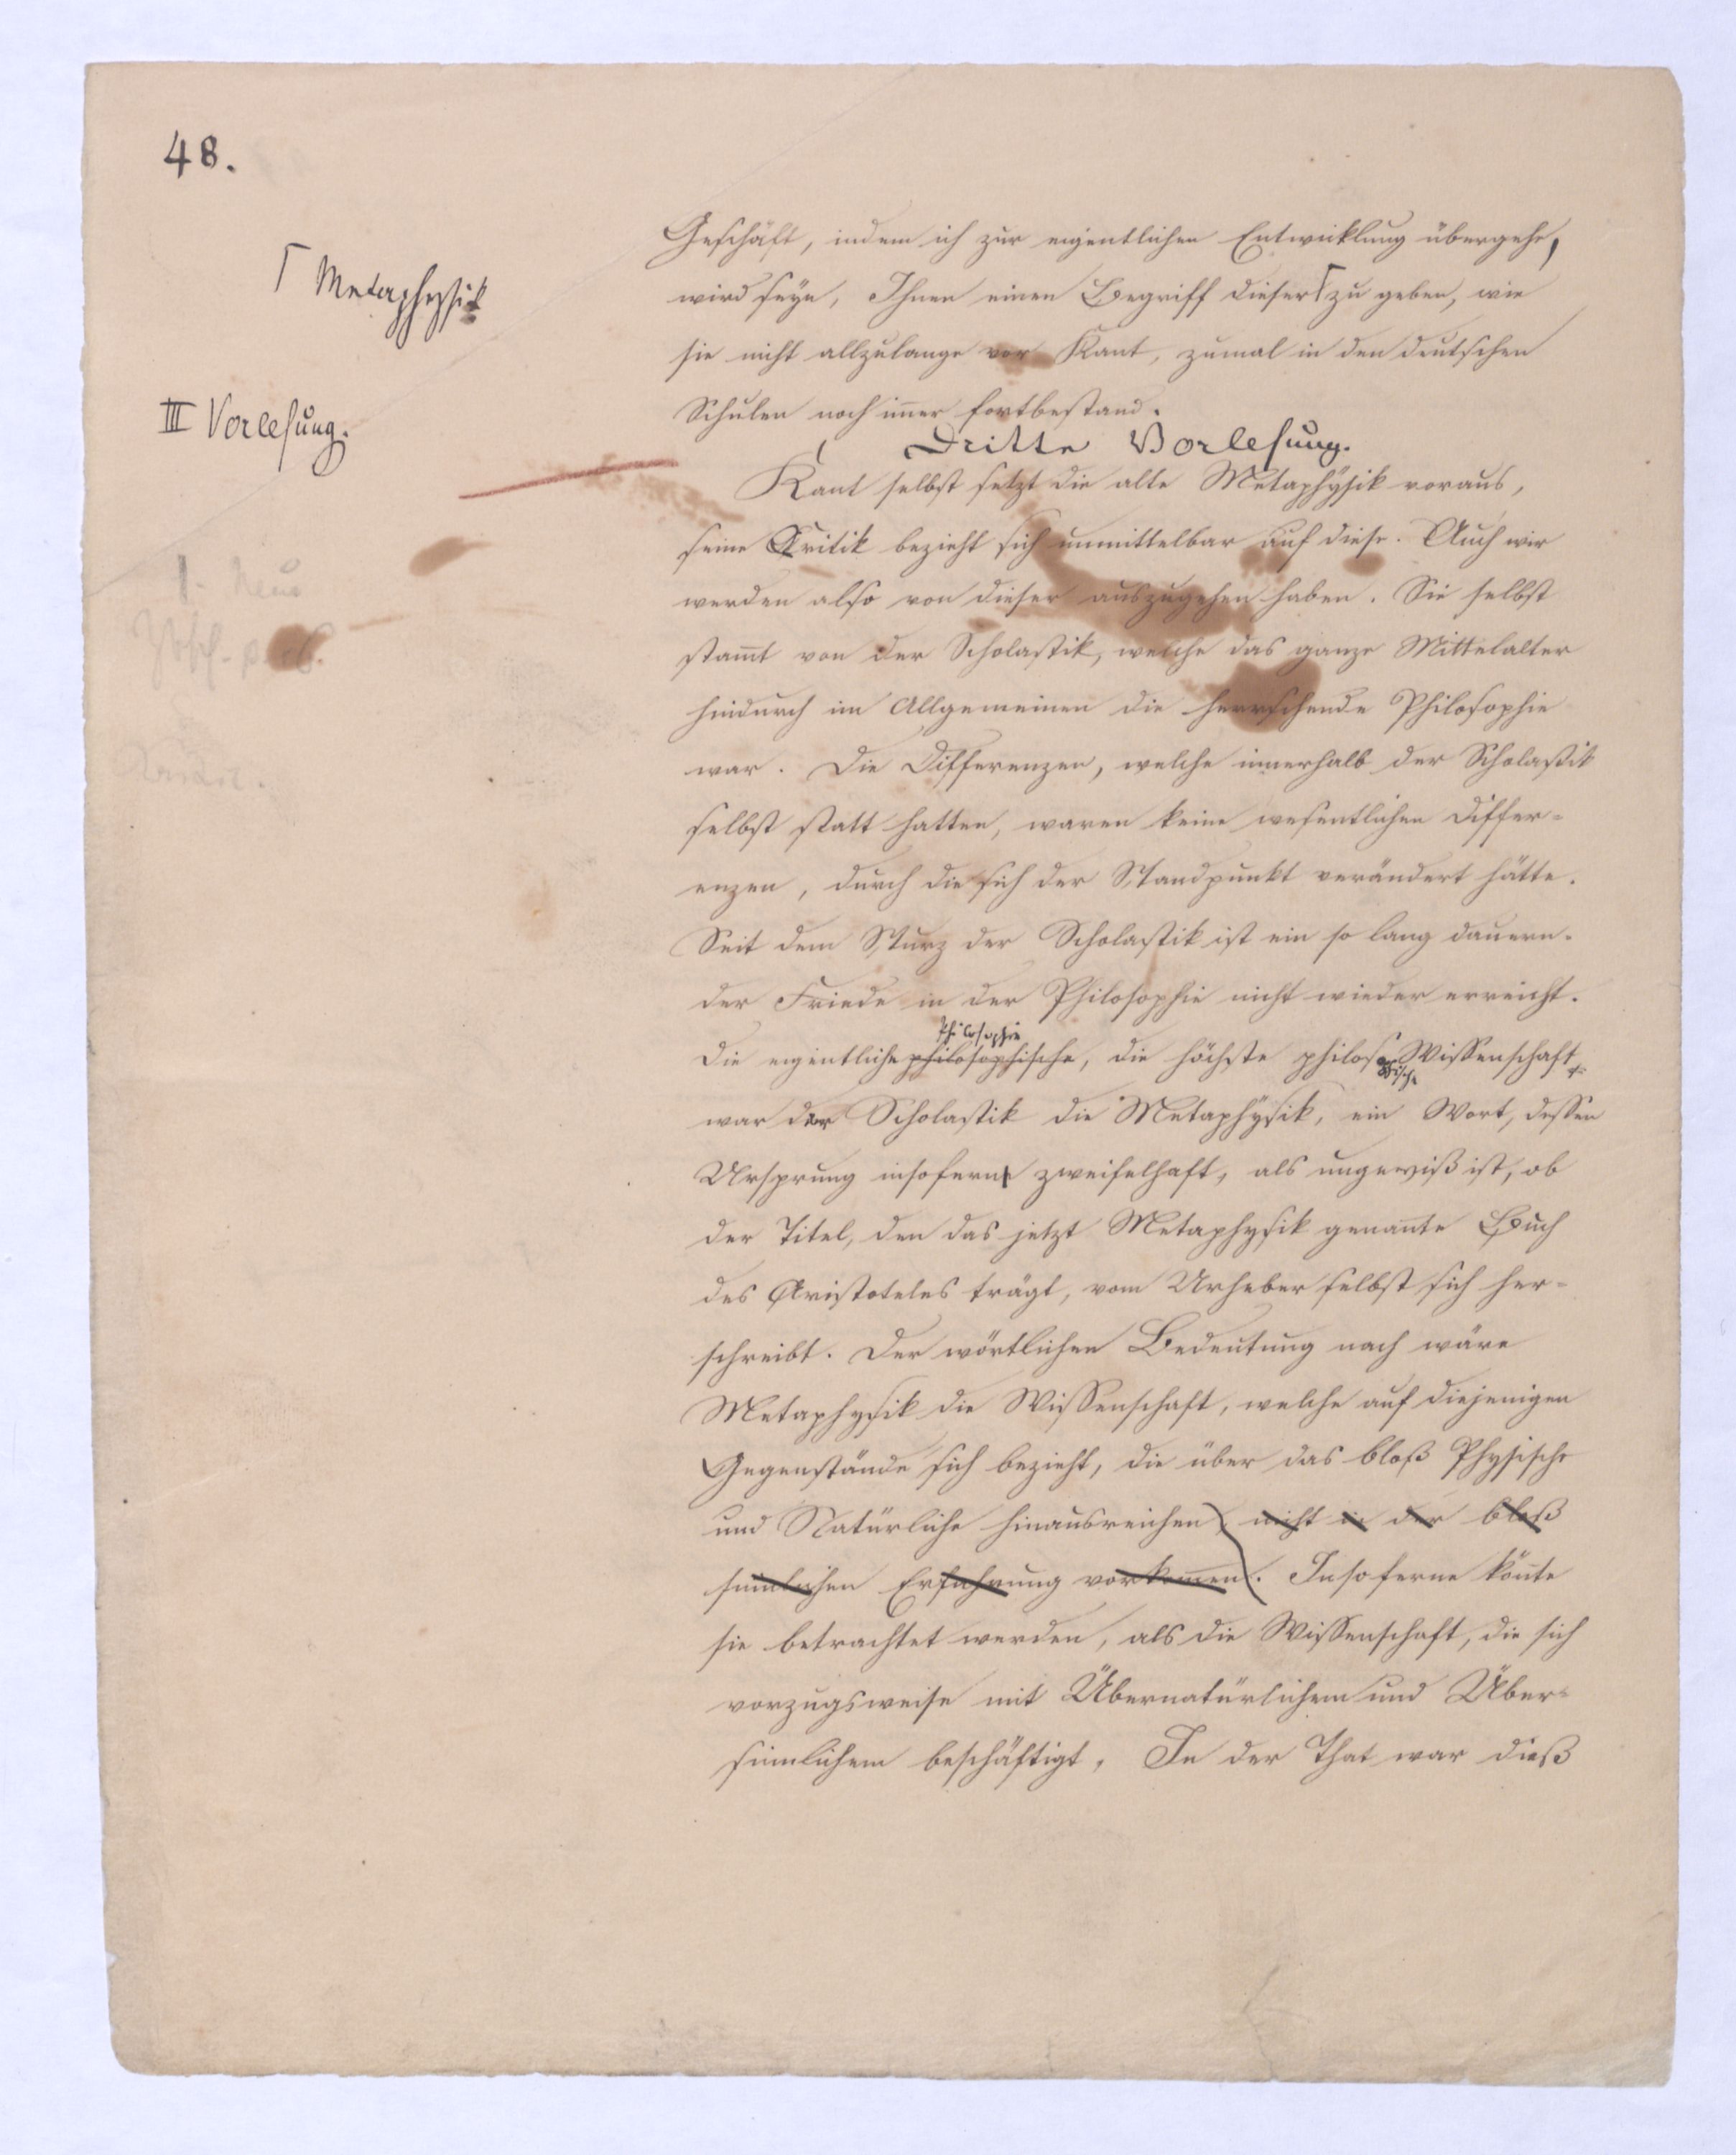 48.
Geschäft, indem ich zur eigentlichen Entwicklung übergehe,
⌈ Metaphysik
wird seyn, Ihnen einen Begriff dieser ⌈ zu geben, wie
sie nicht allzulange vor Kant, zumal in den deutschen
III Vorlesung.
Schulen noch im̄er fortbestand.
Dritte Vorlesung.
Kant selbst setzt die alte Metaphÿsik voraus,
seine Kritik bezieht sich unmittelbar auf diese. Auch wir
werden also von dieser auszugehen haben. Sie selbst
stam̄t von der Scholastik, welche das ganze Mittelalter
hindurch im Allgemeinen die herrschende Philosophie
war. Die Differenzen, welche innerhalb der Scholastik
selbst statt hatten, waren keine wesentlichen Differ-
enzen, durch die sich der Standpunkt verändert hätte.
Seit dem Sturz der Scholastik ist ein so lang dauern-
der Friede in der Philosophie nicht wieder erreicht.
Philosophie
Die eigentliche philosophische, die höchste philosophische Wissenschaft
war der Scholastik die Metaphÿsik, ein Wort, dessen
Ursprung insofern zweifelhaft, als ungewiß ist, ob
der Titel, den das jetzt Metaphysik genan̄te Buch
des Aristoteles trägt, vom Urheber selbst sich her-
schreibt. Der wörtlichen Bedeutung nach wäre
Metaphysik die Wissenschaft, welche auf diejenigen
Gegenstände sich bezieht, die über das bloß Physische
und Natürliche hinausreichen, nicht in der bloß
sinnlichen Erfahrung vorkom̄en. Insoferne kön̄te
sie betrachtet werden, als die Wissenschaft, die sich
vorzugsweise mit Übernatürlichem und Über-
sinnlichem beschäftigt. In der That war dieß